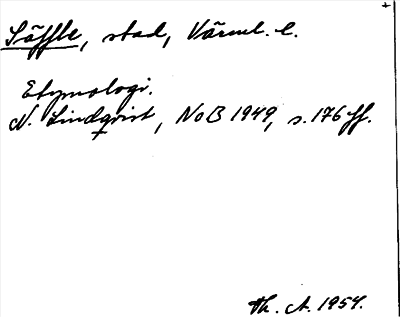 Säffle, stad, Värml. l.
Etymologi.
N. Lindqvist, NoB 1949, s. 176 ff.
Th. A. 1954.